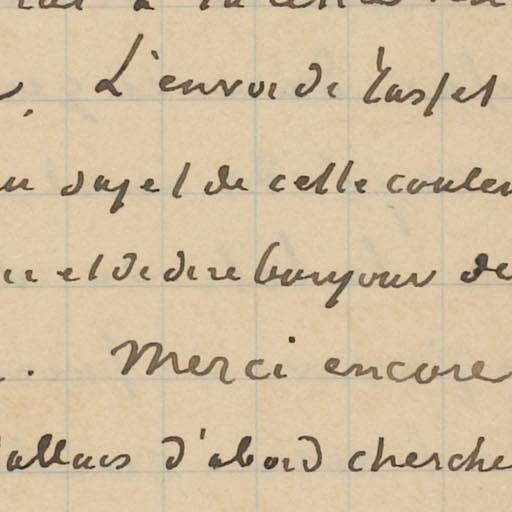 L'envoi de Tasset
au sujet de cette couleu
et de dire bonjour de
Merci encore
'allais d'abord cherche